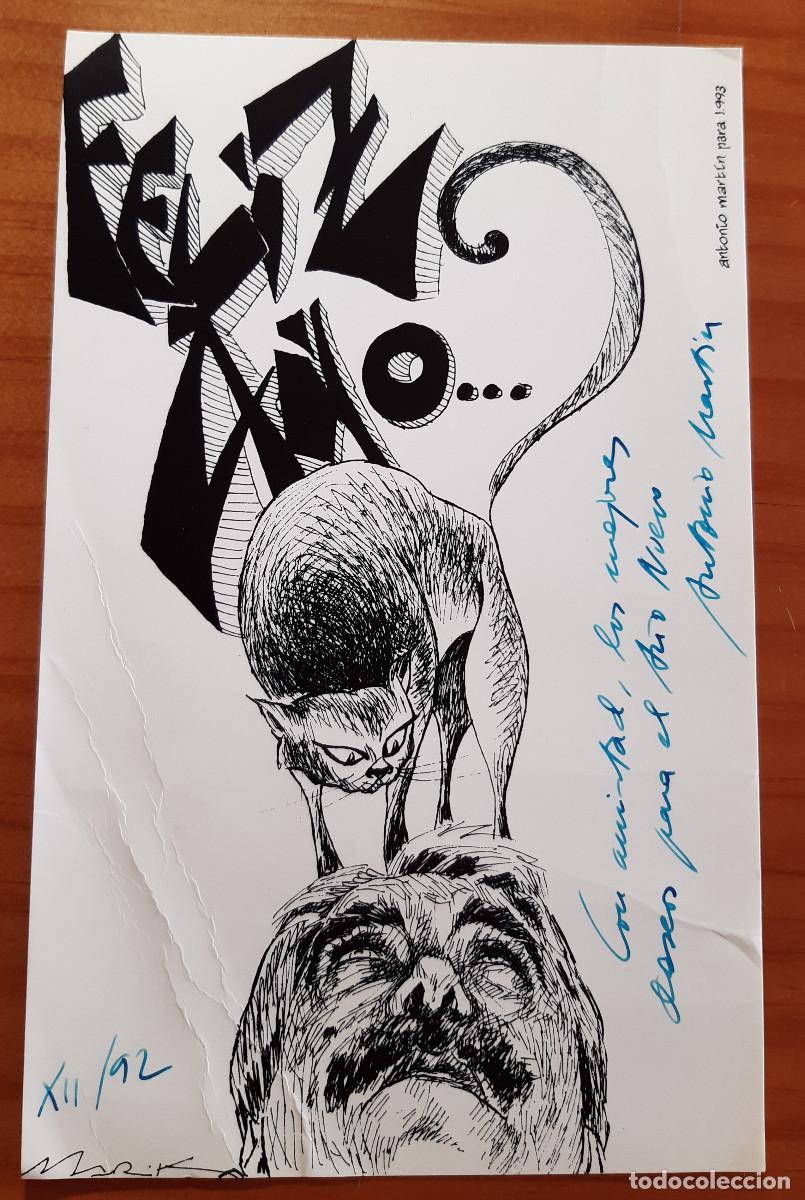 FELIZ
AÑO...
antonio martín para 1.993
Con amistad, los mejores
deseos para el Año Nuevo
Antonio Martín
XII/92
todocoleccion